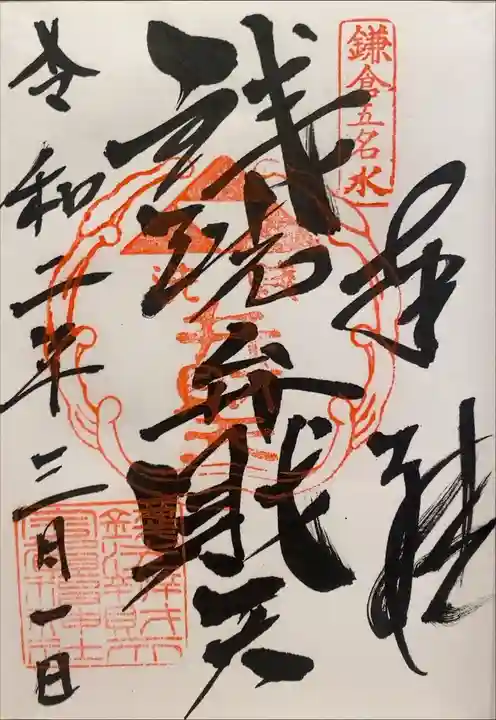 鎌倉五名水
奉拝
銭洗弁財天
令和二年三月一日